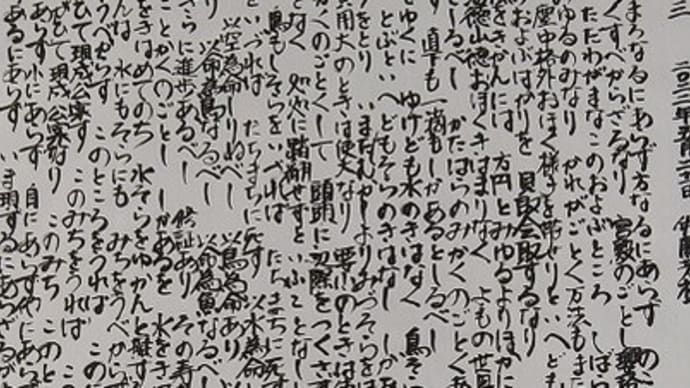 まろなるにあらず 方なるにあらず のこ
くすべからざるなり 宮殿のごとし 瓔
ただわがまなこのおよぶところ しば
ゆるのみなり かれがごとく 万法もまた
塵中格外おほく様子を帯せりといへども
のおよぶばかりを 見取会取するなり
をきかんには 方円とみゆるよりほかに
徳山徳おほくきはまりなく よもの世界
としるべし かたはらのみかくのごとくある
直下も一滴もしかあるとしるべし
をゆくに ゆけども水のきはなく 鳥そら
とぶといへどもそらのきはなし しかあ
をとり いまだむかしよりみづそらをは
只用大のときは使大なり 要小のときは使
かくのごとくして 頭頭に辺際をつくさず
となく 処処に踏翻せずといふことなし
鳥もしそらをいづれば たちまちに死す
いづれば たちまちに死す 以水為命
以空為命しりぬべし 以鳥為命あり
以命為鳥なるべし 以命為魚なるべし
さらに進歩あるべし 修証あり その寿
ことかくのごとし しかあるを 水をきは
をきはめてのち 水そらをゆかんと擬する
んは 水にもそらにも みちをうべから
うべからず このところをうれば この
ひて現成公案す このみちをうれば こ
がひて現成公案なり このみち このと
あらず小にあらず 自にあらず他にあら
あるにあらず いま現ずるにあらざるが